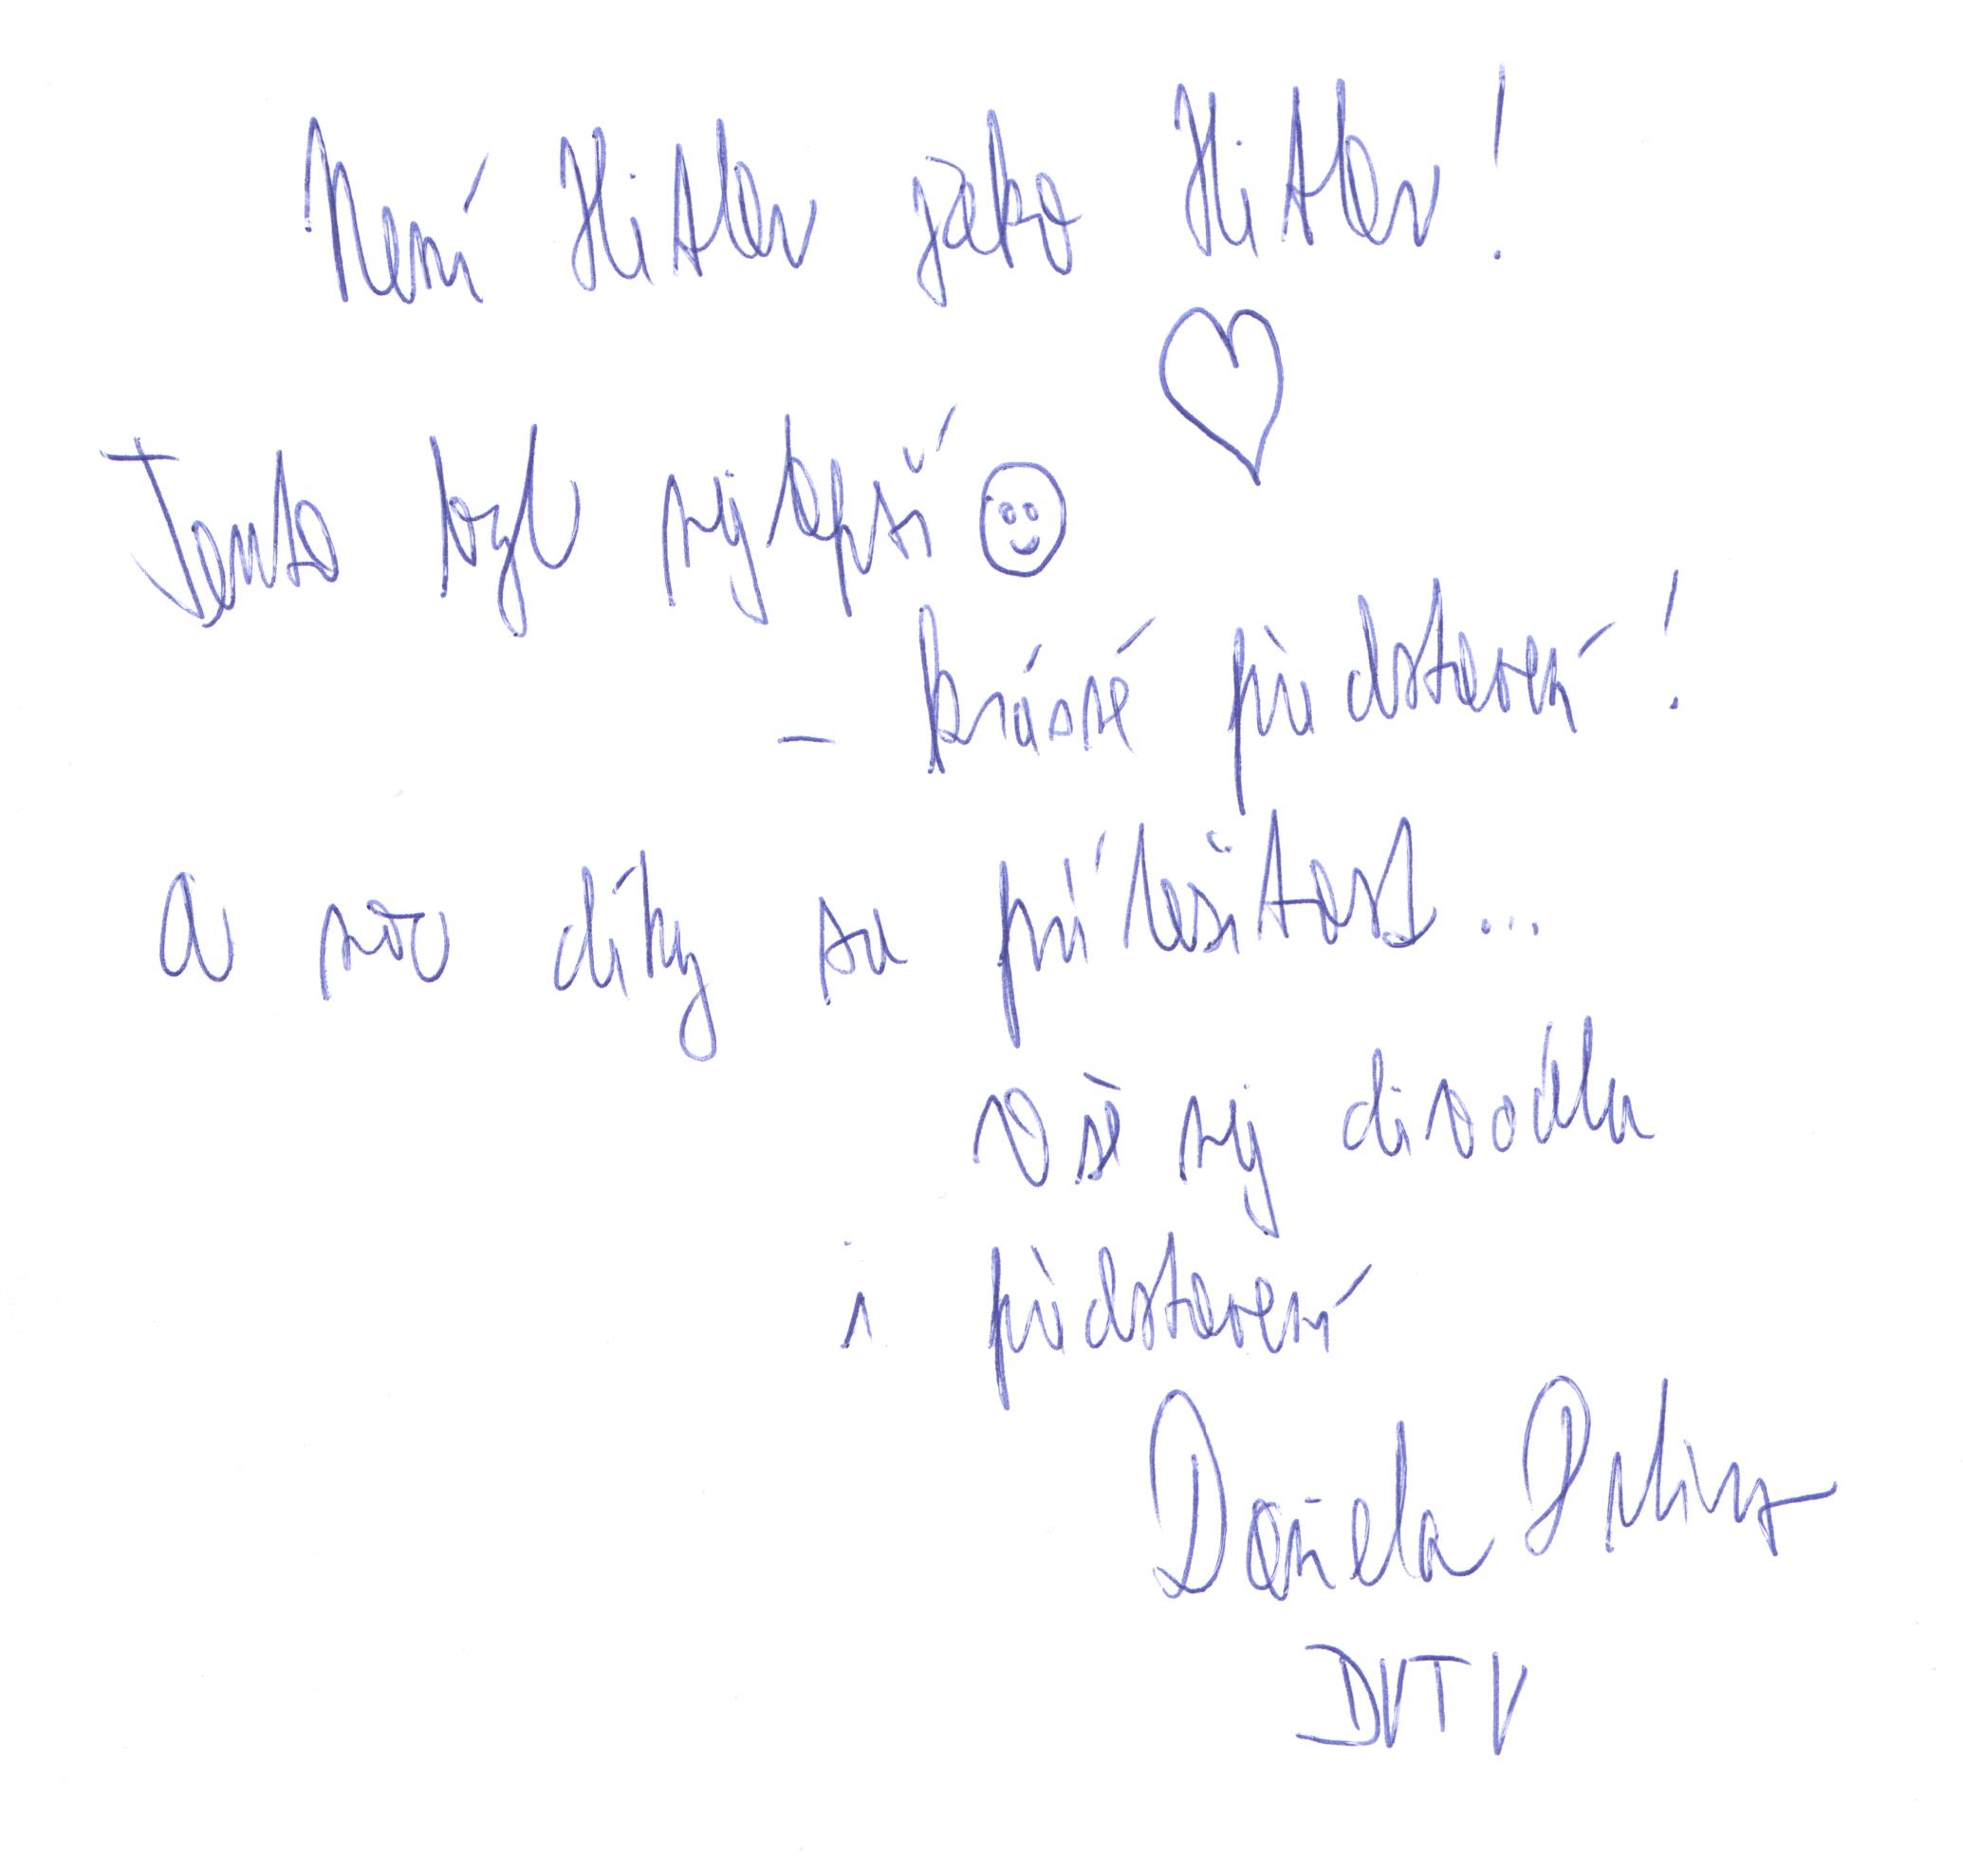 Není Hitler jako Hitler!
Tento byl nejlepší
- krásné představení!
A moc díky za příležitost...
Vše nej divadlu
i představení
Daniela
DVTV